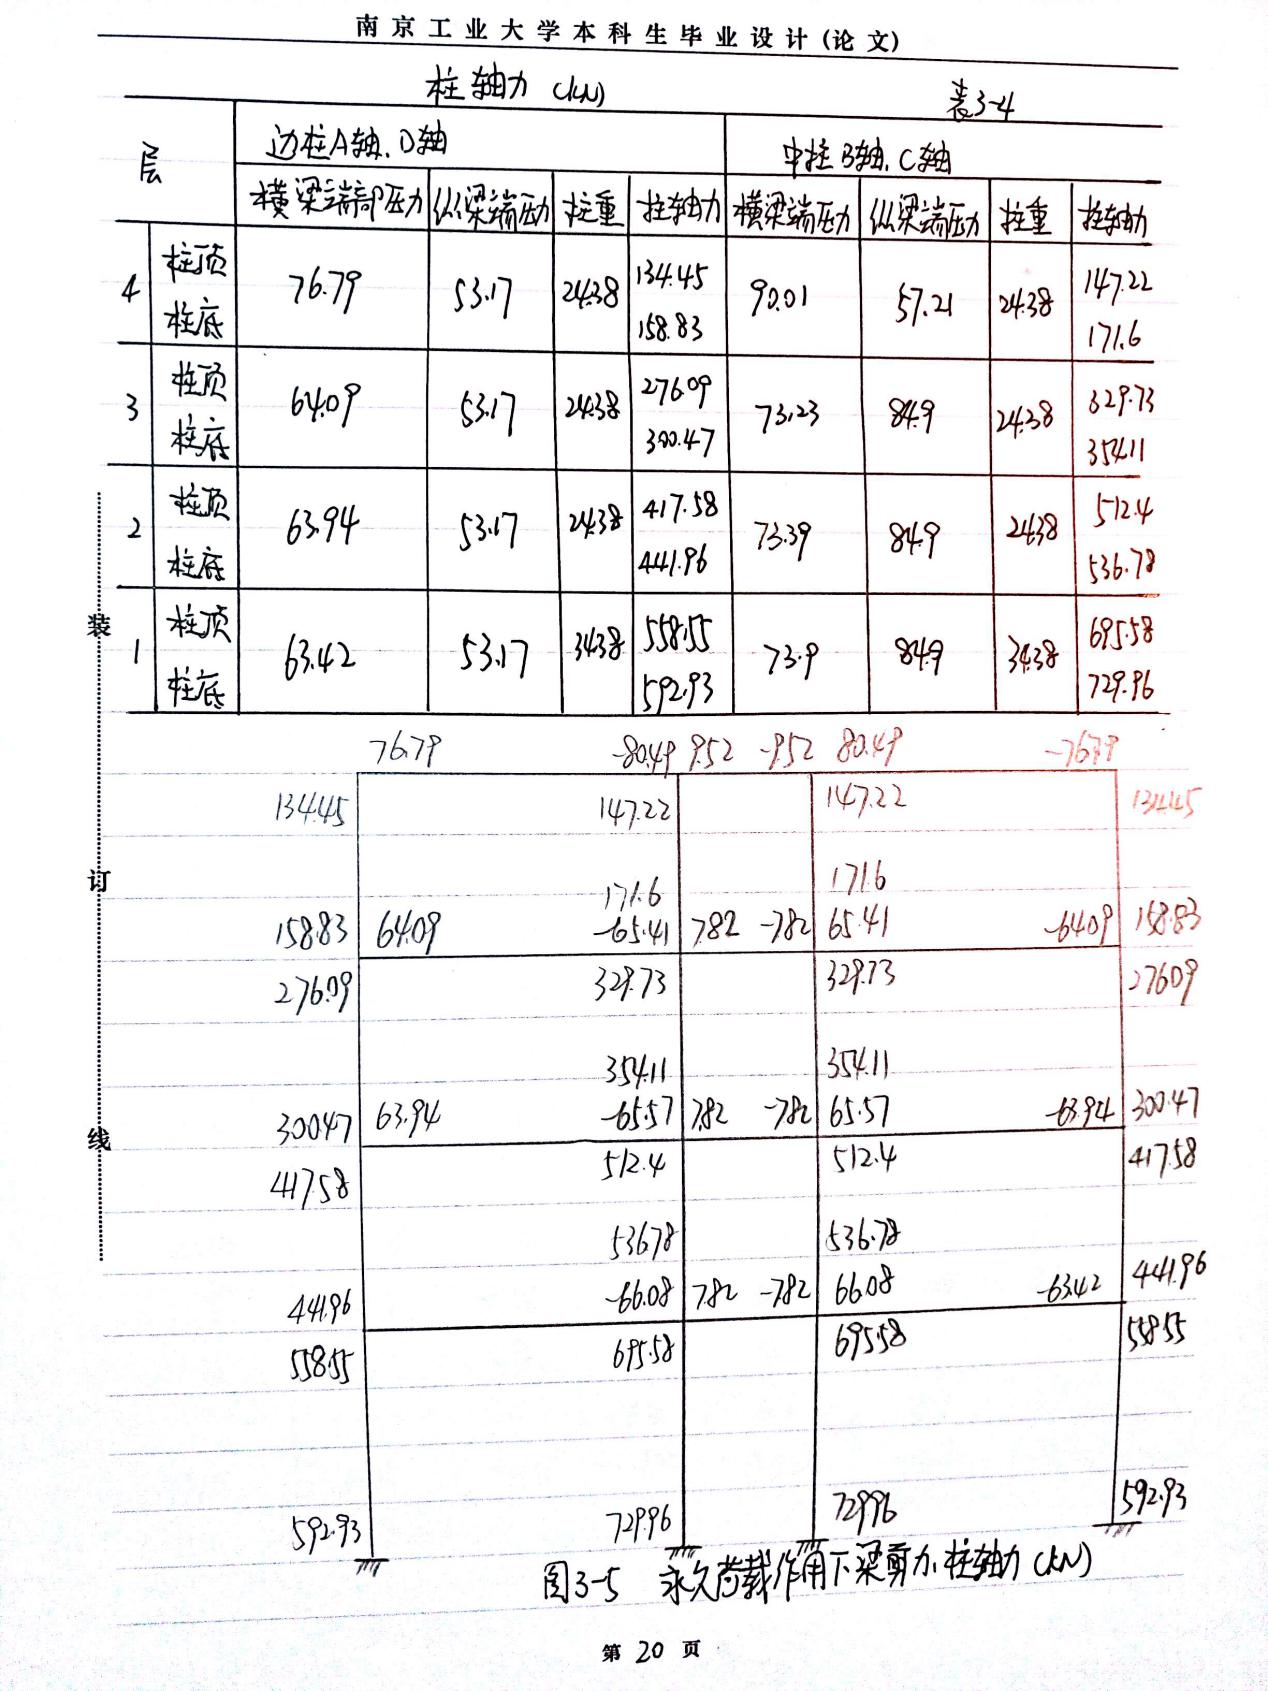 南京工业大学本科生毕业设计(论文)
柱轴力 (kN) 表3-4
层 边柱A轴、D轴 中柱B轴、C轴
横梁端部压力 纵梁端压力 柱重 柱轴力 横梁端压力 纵梁端压力 柱重 柱轴力
4 柱顶 76.79 53.17 24.38 134.45 90.01 57.21 24.38 147.22
柱底 158.83 171.6
3 柱顶 64.09 53.17 24.38 276.09 73.23 84.9 24.38 329.73
柱底 300.47 354.11
2 柱顶 63.94 53.17 24.38 417.58 73.39 84.9 24.38 512.4
柱底 441.96 536.78
1 柱顶 63.42 53.17 34.38 558.55 73.9 84.9 34.38 695.58
柱底 592.93 729.96
76.79 -80.49 9.52 -9.52 80.49 -76.79
134.45 147.22 147.22 134.45
171.6 171.6
158.83 64.09 -65.41 7.82 -7.82 65.41 -64.09 158.83
276.09 329.73 329.73 276.09
354.11 354.11
300.47 63.94 -65.57 7.82 -7.82 65.57 -63.94 300.47
417.58 512.4 512.4 417.58
536.78 536.78
441.96 -66.08 7.82 -7.82 66.08 -63.42 441.96
558.55 695.58 695.58 558.55
592.93 729.96 729.96 592.93
图3-5 永久荷载作用下梁剪力、柱轴力 (kN)
第 20 页
装
订
线